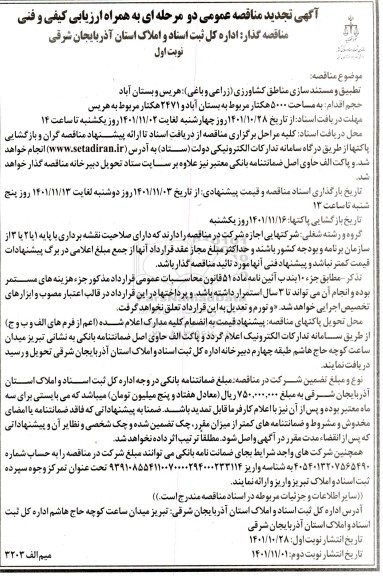 آگهی تجدید مناقصه عمومی دو مرحله ای به همراه ارزیابی کیفی و فنی
مناقصه گذار: اداره کل ثبت اسناد و املاک استان آذربایجان شرقی
نوبت اول
موضوع مناقصه:
تطبیق و مستندسازی مناطق کشاورزی (زراعی و باغی): هریس و بستان آباد
حجم اقدام: به مساحت ۵۰۰۰ هکتار مربوط به بستان آباد و ۲۴۷۱ هکتار مربوط به هریس
مهلت دریافت اسناد: از تاریخ ۱۴۰۱/۱۰/۲۸ روز چهارشنبه لغایت ۱۴۰۱/۱۱/۰۲ روز یکشنبه تا ساعت ۱۴
محل دریافت اسناد: کلیه مراحل برگزاری مناقصه از دریافت اسناد تا ارائه پیشنهاد مناقصه گران و بازگشایی
پاکتها از طریق درگاه سامانه تدارکات الکترونیکی دولت (ستاد) به آدرس (www.setadiran.ir) انجام خواهد
شد. و پاکت الف حاوی اصل ضمانتنامه بانکی معتبر نیز علاوه بر سایت ستاد تحویل دبیرخانه مناقصه گذار خواهد
شد.
تاریخ بارگذاری اسناد مناقصه و قیمت پیشنهادی: از تاریخ ۱۴۰۱/۱۱/۰۳ روز دوشنبه لغایت ۱۴۰۱/۱۱/۱۳ روز پنج
شنبه تا ساعت ۱۳
تاریخ بازگشایی پاکتها: ۱۴۰۱/۱۱/۱۶ روز یکشنبه
گروه و رشته شغلی: شرکتهایی اجازه شرکت در مناقصه را دارند که دارای صلاحیت نقشه برداری با پایه ۱ یا ۲ یا ۳ از
سازمان برنامه و بودجه کشور باشند و حداکثر مبلغ مجاز عقد قرارداد آنها از جمع مبلغ اعلامی در برگ پیشنهادات
قیمت کمتر نباشد و پیشنهاد فنی آنها مورد تائید مناقصه گذار باشد.
تذکر - مطابق جزء ۱۰ بند ب آئین نامه ماده ۵۱ قانون محاسبات عمومی قرارداد مذکور جزء هزینه های مستمر
بوده و انجام آن می تواند تا ۳ سال استمرار داشته باشد. و پرداختها در این قرارداد در قالب اعتبار مصوب و ابزارهای
تخصیص اجرایی خواهد شد. «و تورم و تعدیل به این قرارداد تعلق نخواهد گرفت.
محل تحویل پاکتهای مناقصه: پیشنهاد قیمت به انضمام کلیه مدارک اعلام شده (اعم از فرم های الف و ب و ج)
از طریق سامانه تدارکات الکترونیک اعلام گردد و پاکت الف حاوی اصل ضمانتنامه بانکی به نشانی تبریز میدان
ساعت کوچه حاج هاشم طبقه چهارم دبیرخانه اداره کل ثبت اسناد و املاک استان آذربایجان شرقی تحویل و رسید
دریافت نمایند.
نوع و مبلغ تضمین شرکت در مناقصه: مبلغ ضمانتنامه بانکی در وجه اداره کل ثبت اسناد و املاک استان
آذربایجان شرقی به مبلغ ۷۵۰,۰۰۰,۰۰۰ ریال (معادل هفتاد و پنج میلیون تومان) میباشد که می بایستی برای سه
ماه معتبر بوده و پس از آن نیز با اعلام کارفرما قابل تمدید باشد. ضمنا به پیشنهاداتی که فاقد ضمانتنامه یا امضای
مخدوش و مشروط و ضمانتنامه های کمتر از میزان مقرر، چک تضمین شده و چک شخصی و نظایر آن و پیشنهاداتی
که پس از انقضاء مدت مقرر در آگهی واصل شود. مطلقا ترتیب اثر داده نخواهد شد.
همچنین شرکت های واجد شرایط بجای ضمانت نامه بانکی می توانند مبلغ شرکت در مناقصه را به حساب شماره
تحت عنوان تمرکز وجوه سپرده
ثبت اسناد و املاک تبریز واریز و ارائه نمایند.
((سایر اطلاعات و جزئیات مربوطه در اسناد مناقصه مندرج است.))
آدرس اداره کل ثبت اسناد و املاک استان آذربایجان شرقی: تبریز میدان ساعت کوچه حاج هاشم اداره کل ثبت
اسناد و املاک استان آذربایجان شرقی
تاریخ انتشار نوبت اول: ۱۴۰۱/۱۰/۲۸
تاریخ انتشار نوبت دوم: ۱۴۰۱/۱۱/۰۱
میم الف ۳۲۰۳